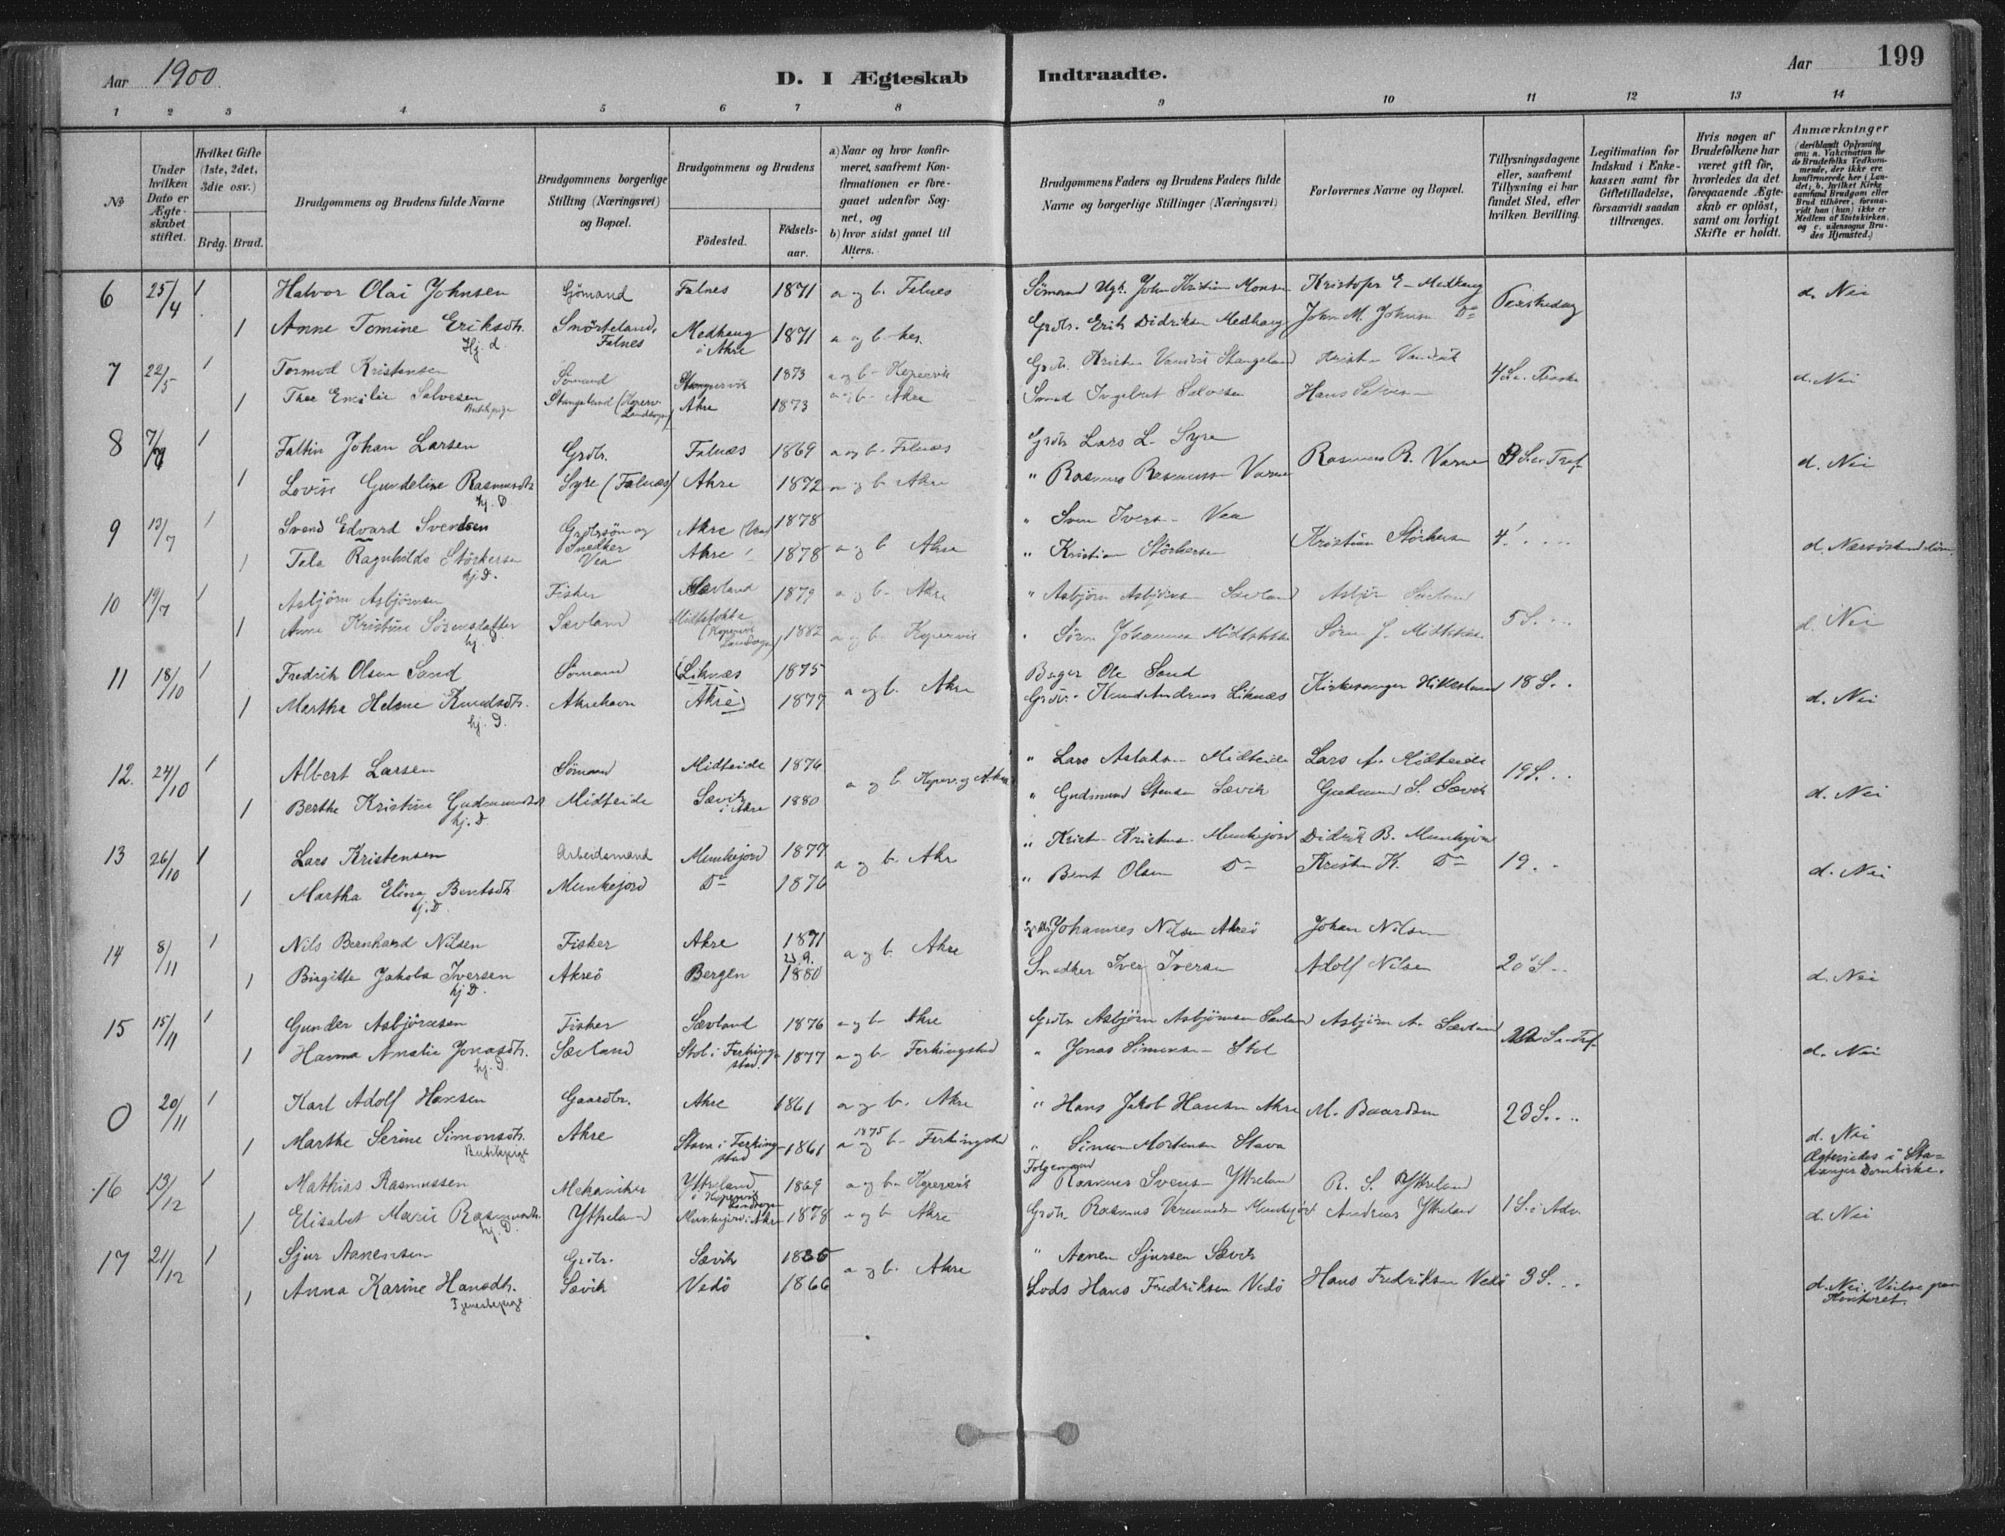 Aar 1900
D. I Ægteskab Indtraadte.
Aar 199
1 2 3 4 5 6 7 8 9 10 11 12 13 14
No
Under hvilken Dato er Ægteskabet stiftet.
Hvilket Gifte (1ste, 2det, 3die osv.)
Brdg. Brud.
Brudgommens og Brudens fulde Navne
Brudgommens borgerlige Stilling (Næringsvei) og Bopæl.
Brudgommens og Brudens
Födested.
Födselsaar.
a) Naar og hvor konfirmeret, saafremt Konfirmationen er foregaaet udenfor Sognet, og
b) hvor sidst gaaet til Alters.
Brudgommens Faders og Brudens Faders fulde Navne og borgerlige Stillinger (Næringsvei)
Forlovernes Navne og Bopæl.
Tillysningsdagene eller, saafremt Tillysning ei har fundet Sted, efter hvilken Bevilling.
Legitimation for Indskud i Enkekassen samt for Giftetilladelse, forsaavidt saadan tiltrænges.
Hvis nogen af Brudefolkene har været gift för, hvorledes da det foregaaende Ægteskab er oplöst, samt om lovligt Skifte er holdt.
Anmærkninger
(deriblandt Oplysning om: a. Vakcination for de Brudefolks Vedkommende, der ikke ere konfirmerede her i Landet; b. hvilket Kirkesamfund Brudgom eller Brud tilhörer, forsaavidt han (hun) ikke er Medlem af Statskirken, og c. udensogns Brudes Hjemsted.)
6 25/4 1 Halvor Olai Johnsen Sömand Falnes 1871 a og b. Falnes Sömand John Kristian Monsen Kristofer E Medhaug d. Nei
1 Anne Tomine Eriksdtr. Snörteland, Medhaug 1871 a og b. her. Grdbr. Erik Didriksen Medhaug John M. Johnsen Do
Hj. d. Falnes i Akre
7 22/5 1 Tormod Kristensen Sömand 1873 a og b Kopervik Grdb. Kristen Stangeland 4 d. Nei
1 Thee Emilie Salvesen Stangeland (Koperv. Landsogn) Akre 1873 a og b. Akre Ingebret Salvesen Hans Salvesen
Butikpige
8 1 Faltin Johan Larsen Grdbr. Falnæs 1869 a og b. Falnæs Grdbr Lars L. Syre Rasmus R. Varne d. Nei
1 Lovise Gundeline Rasmusdtr Syre (Falnæs) Akre 1872 a og b Akre " Rasmus Rasmussen Varne
hj. D
9 13/7 1 Svend Edvard Svendsen Grdbrsön og Akre (Vea) 1878 " Sven Ivers- Vea Kristian Störkersen 4
1 Tala Ragnhilda Störkersen Snedker Akre 1878 a og b Akre " Kristian Störkersen
hj. D. Vea
10 19/7 1 Asbjörn Asbjörnsen Fisker Sævland 1879 a og b. Akre " Asbjörn Asbjörns- Sævland 5 S. d. Nei
1 Anne Kristine Sörensdatter Sævland (Kopervik Landsogn) 1882 a og b. Kopervik Sören Johannes Sören J.
hj. D
11 18/10 1 Fredrik Olsen Sand Sömand (Liknæs 1875 a og b. Akre Bager Ole Sand Kirkesanger Hillesland 18 S. d. Nei
1 Martha Helene Knudsdtr. Akrehavn Akre) 1877 Grdbr. Knud Andreas Liknæs
hj. D.
12. 24/10 1 Albert Larsen Sömand Midteide 1876 a og b Koperv. og Akre " Lars Aslaks- Midteide Lars A. Midteide 19 S. d. Nei
1 Berthe Kristine Gudmundsdtr Midteide Sævik i Akre 1880 " Gudmund Stensen Sævik Gudmund S. Sævik
hj. D
13 26/10 1 Lars Kristensen Arbeidsmand Munkejord 1877 a og b. Akr " Munkejord Didrik B. Munkejord 19. d. Nei
1 Martha Elina Bentsdtr. Munkejord Do 1876 " Bent Olsen Do Kristen K. Do
hj. D.
14 8/11 1 Nils Bernhard Nilsen Fisker Akre 1871 a og b. Akre Johannes Nilsen Akreö Johan Nilsen 20 S. d. Nei
1 Birgitte Jakoba Iversen Akreö Bergen 1880 Snedker Iver Iversen Adolf Nilsen
hj D.
15 15/11 1 Gunder Asbjörnsen Fisker Sævland 1876 a og b. Akre Grdbr. Asbjörn Asbjörnsen Sævland Asbjörn A. Sævland d. Nei
1 Hanna Amalie Jonasdtr. Sævland Stol i Ferkingstad 1877 a og b. Ferkingstad " Jonas Simons- Stol
hj. D.
0 20/11 1 Karl Adolf Hansen Gaardbr. Akre 1861 a og b. Akre " Hans Jakob Hansen Akre M. Baardsen 23 S. d. Nei
1 Marthe Serine Simonsdtr. Akre Stava i Ferkingstad 1861 a 1875 og b. Ferkingstad " Simon Mortensen Stava Ægtevies i Stavanger Domkirke.
Butikpige
16 13/12 1 Mathias Rasmussen Mekaniker Ytreland i Kopervik Landsogn 1869 a og b. Kopervik Rasmus Svens- Ytreland R. S. Ytreland 1 S. i Adv. d. Nei
1 Elisabet Marie Rasmusdtr. Ytreland Munkejord i Akre 1878 a og b. Akre Grdbr. Rasmus Munkejord Andreas Ytreland
hj. D.
17 21/12 1 Sjur Aanensen Grdbr. Sævik 1835 a og b. Akre " Aanen Sjursen Sævik Hans Fredriksen Vedö 3 S. d. Nei. Vielse paa Kontoret.
1 Anna Karine Hansdtr. Sævik Vedö 1866 Lods Hans Fredriksen Vedö
Tjenestepige